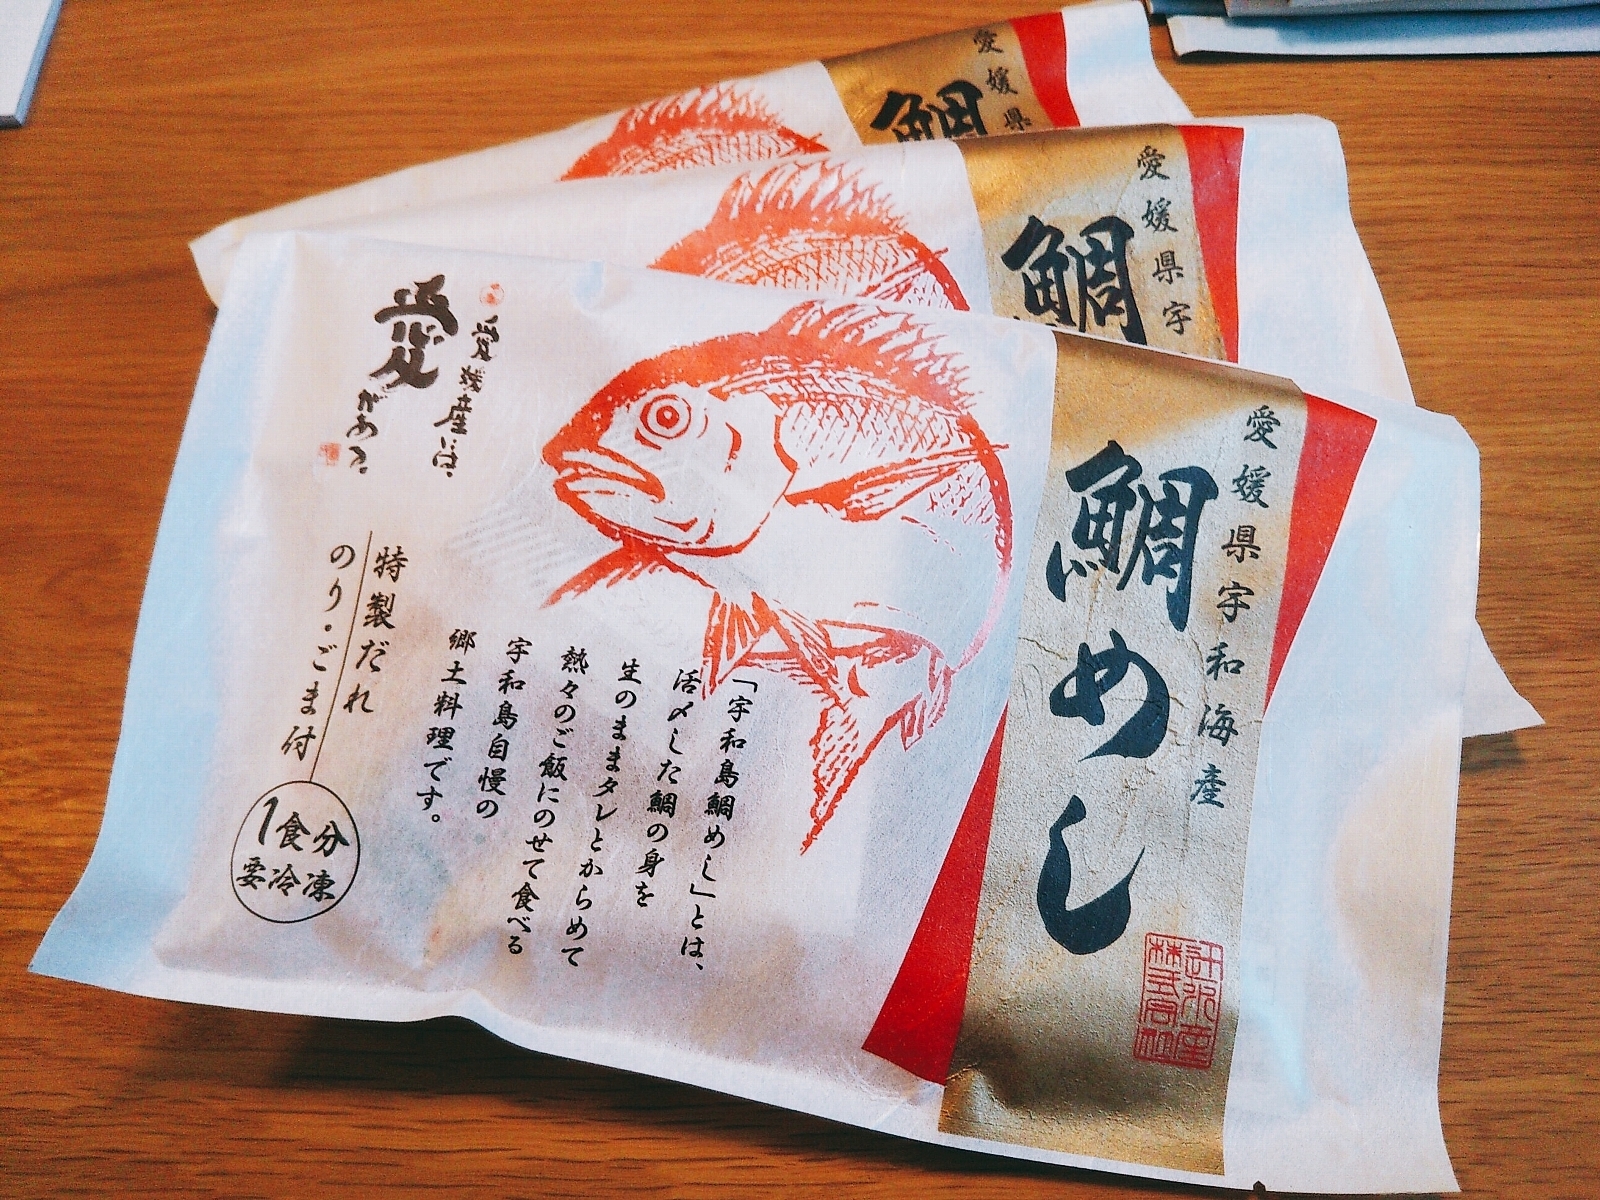 愛媛県宇和海産
鯛めし
辻水産
株式会社
「宇和島鯛めし」とは、
活〆した鯛の身を
生のままタレとからめて
熱々のご飯にのせて食べる
宇和島自慢の
郷土料理です。
愛媛産には、
愛がある。
特製だれ
のり・ごま付
1食分
要冷凍
愛媛県宇
鯛
愛媛県
鯛